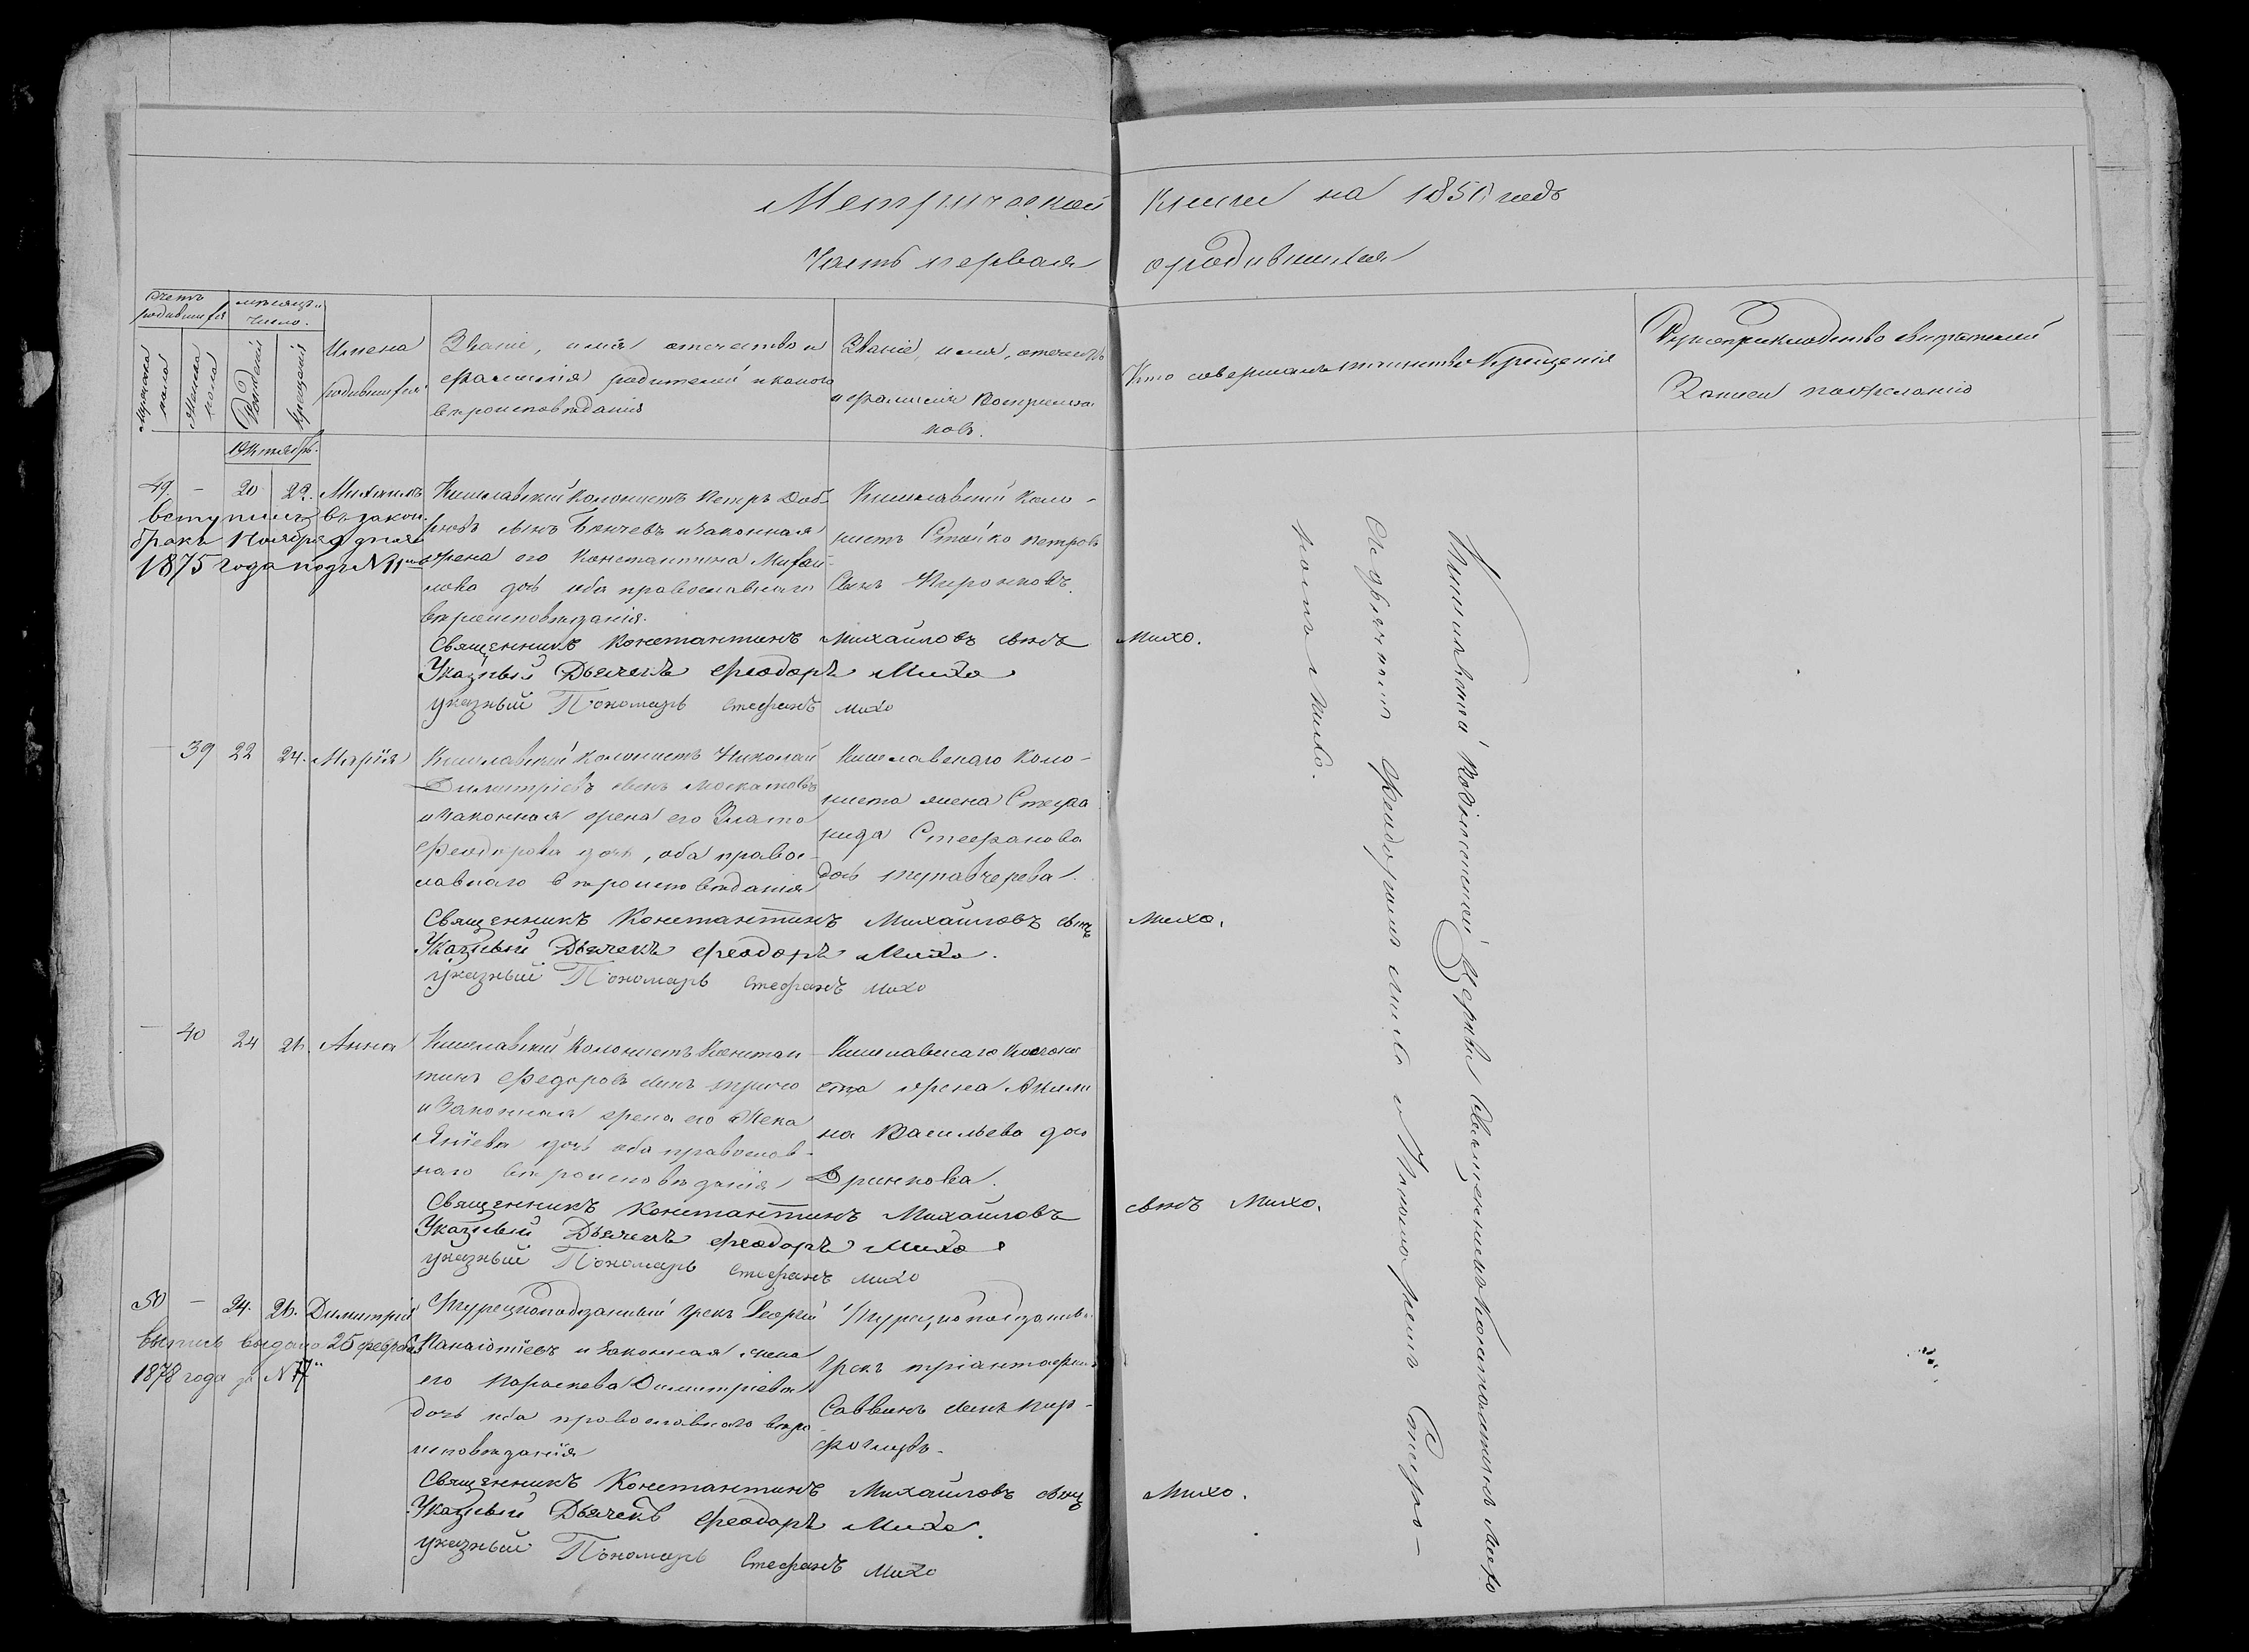 Метрической Книги на 185 годъ
Часть первая о родившихся
Счетъ родившихся
мѣсяцъ и число.
Мужеска пола
Женска пола
Рожденій
Крещенія
Имена родившихся
Званіе, имя отечество и
фамилія родителей и какого
вѣроисповѣданія
Званіе, имя, отечество
и фамилія Воспріемни
ковъ.
Кто совершалъ таинство Крещенія
Рукоприкладство свидѣтелей
Записи по желанію
Октябрь.
49. – 20 22. Михаилъ
вступилъ въ закон.
бракъ Ноября 9 дня
1875 года подъ N 11
Кишлавский Колонистъ Петръ
сынъ Бынчевъ и законная
жена его Константина Михаи-
лова дочь оба православнаго
вѣроисповѣданія.
Кишлавский Коло-
нистъ Стойко Петровъ
сынъ Пиронковъ.
Священникъ Константинъ Михайловъ сынъ Михо.
Указный Дьячекъ Феодоръ Михо
указный Пономарь Стефанъ михо
– 39 22 24. Марія
Кишлавский колонистъ Николай
Димитріевъ сынъ
и законная жена его Злата
Феодорова дочь, оба право-
славнаго вѣроисповѣданія
Кишлавскаго Коло-
ниста жена Стефа
нида Стефанова
дочь
Священникъ Константинъ Михайловъ сынъ Михо.
Указный Дьячекъ Феодоръ Михо.
указный Пономарь Стефанъ михо
– 40 24 26. Анна
Кишлавский Колонистъ Констан-
тинъ Федоровъ сынъ
и Законная жена его
дочь оба православ-
наго вѣроисповѣданія
Кишлавскаго Колони
ста жена Акили
на Васильева дочь
Дринкова.
Священникъ Константинъ Михайловъ сынъ Михо.
Указный Дьячекъ Феодоръ Михо
указный Пономарь Стефанъ михо
50 – 24. 26. Димитрій
выпись выдана 25 февраля
1878 года за N 77
Турецкоподданный грекъ Георгій
Панаіотіевъ и законная жена
его Параскева Димитріева
дочь оба православнаго вѣро
исповѣданія
Турецкоподданны
грекъ
Саввинъ сынъ
Священникъ Константинъ Михайловъ сынъ Михо.
Указный Дьячекъ Феодоръ Михо.
указный Пономарь Стефанъ михо
Кишлавской Церкви Священникъ Константинъ Михо
Съ дьячкомъ Феодоромъ Михо и Пономаремъ Стефа-
номъ Михо.